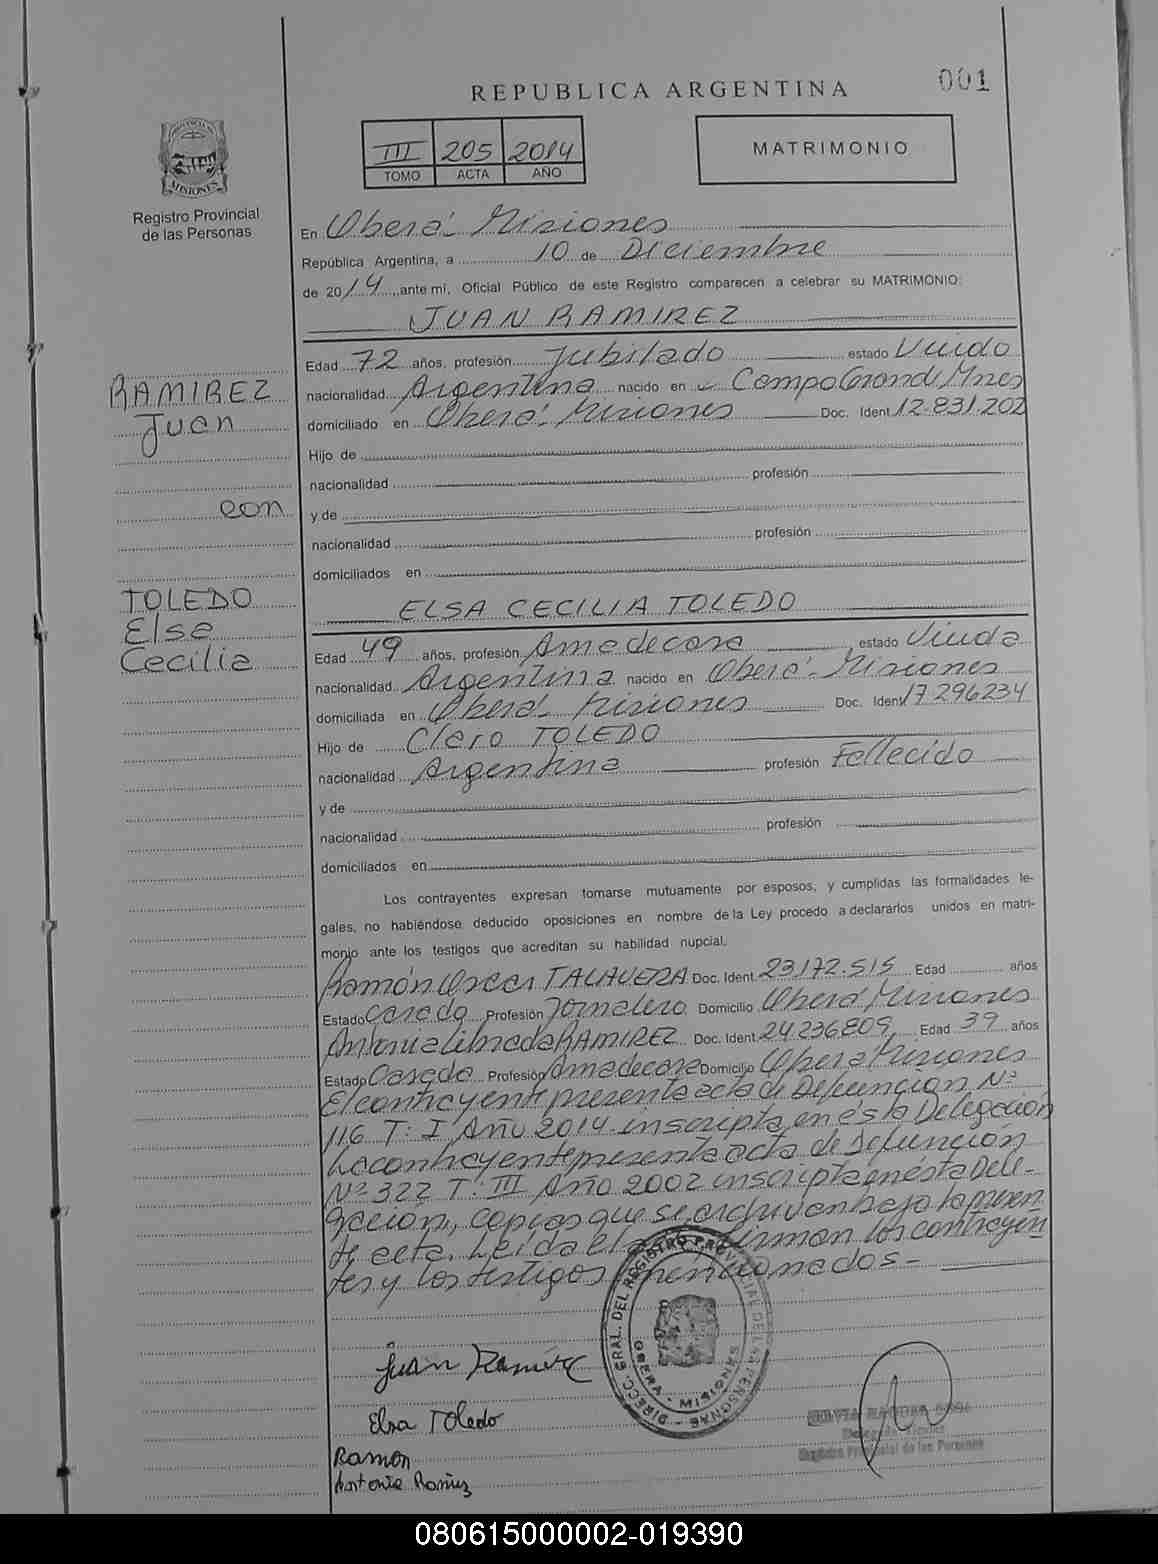 REPUBLICA ARGENTINA
001
III 205 2014
TOMO ACTA AÑO
MATRIMONIO
PROVINCIA DE
MISIONES
Registro Provincial
de las Personas
En Oberá - Misiones
República Argentina, a 10 de Diciembre
de 2014, ante mí, Oficial Público de este Registro comparecen a celebrar su MATRIMONIO:
JUAN RAMIREZ
Edad 72 años, profesión Jubilado estado Viudo
RAMIREZ
nacionalidad Argentina nacido en Campo Grande Mnes
Juan
domiciliado en Oberá - Misiones Doc. Ident 12.831.202
Hijo de
nacionalidad profesión
con
y de
nacionalidad profesión
domiciliados en
TOLEDO
ELSA CECILIA TOLEDO
Elsa
Edad 49 años, profesión Ama de casa estado Viuda
Cecilia
nacionalidad Argentina nacido en Oberá - Misiones
domiciliada en Oberá - Misiones Doc. Ident 17296234
Hijo de Claro TOLEDO
nacionalidad Argentina profesión Fallecido
y de
nacionalidad profesión
domiciliados en
Los contrayentes expresan tomarse mutuamente por esposos, y cumplidas las formalidades le-
gales, no habiéndose deducido oposiciones en nombre de la Ley procedo a declararlos unidos en matri-
monio ante los testigos que acreditan su habilidad nupcial.
Ramón Oscar TALAVERA Doc. Ident. 23.172.515 Edad años
Estado Casado Profesión Jornalero Domicilio Oberá Misiones
Antonia Librada RAMIREZ Doc. Ident. 24236809 Edad 39 años
Estado Casada Profesión Ama de casa Domicilio Oberá Misiones
El contrayente presenta acta de Defunción Nº
116 T: I Año 2014 inscripta en ésta Delegación
La contrayente presenta acta de Defunción
Nº 322 T: III Año 2002 inscripta en ésta Dele-
gación, copias que se archivan bajo la presen
te acta. Leída el firman los contrayen
tes y los testigos mencionados -
DIRECC. GRAL. DEL REGISTRO PROVINCIAL DE LAS PERSONAS
OBERA - MISIONES
Juan Ramirez
Elsa Toledo
Ramon
Antonia Ramirez
SILVIA
Registro Provincial de las Personas
080615000002-019390